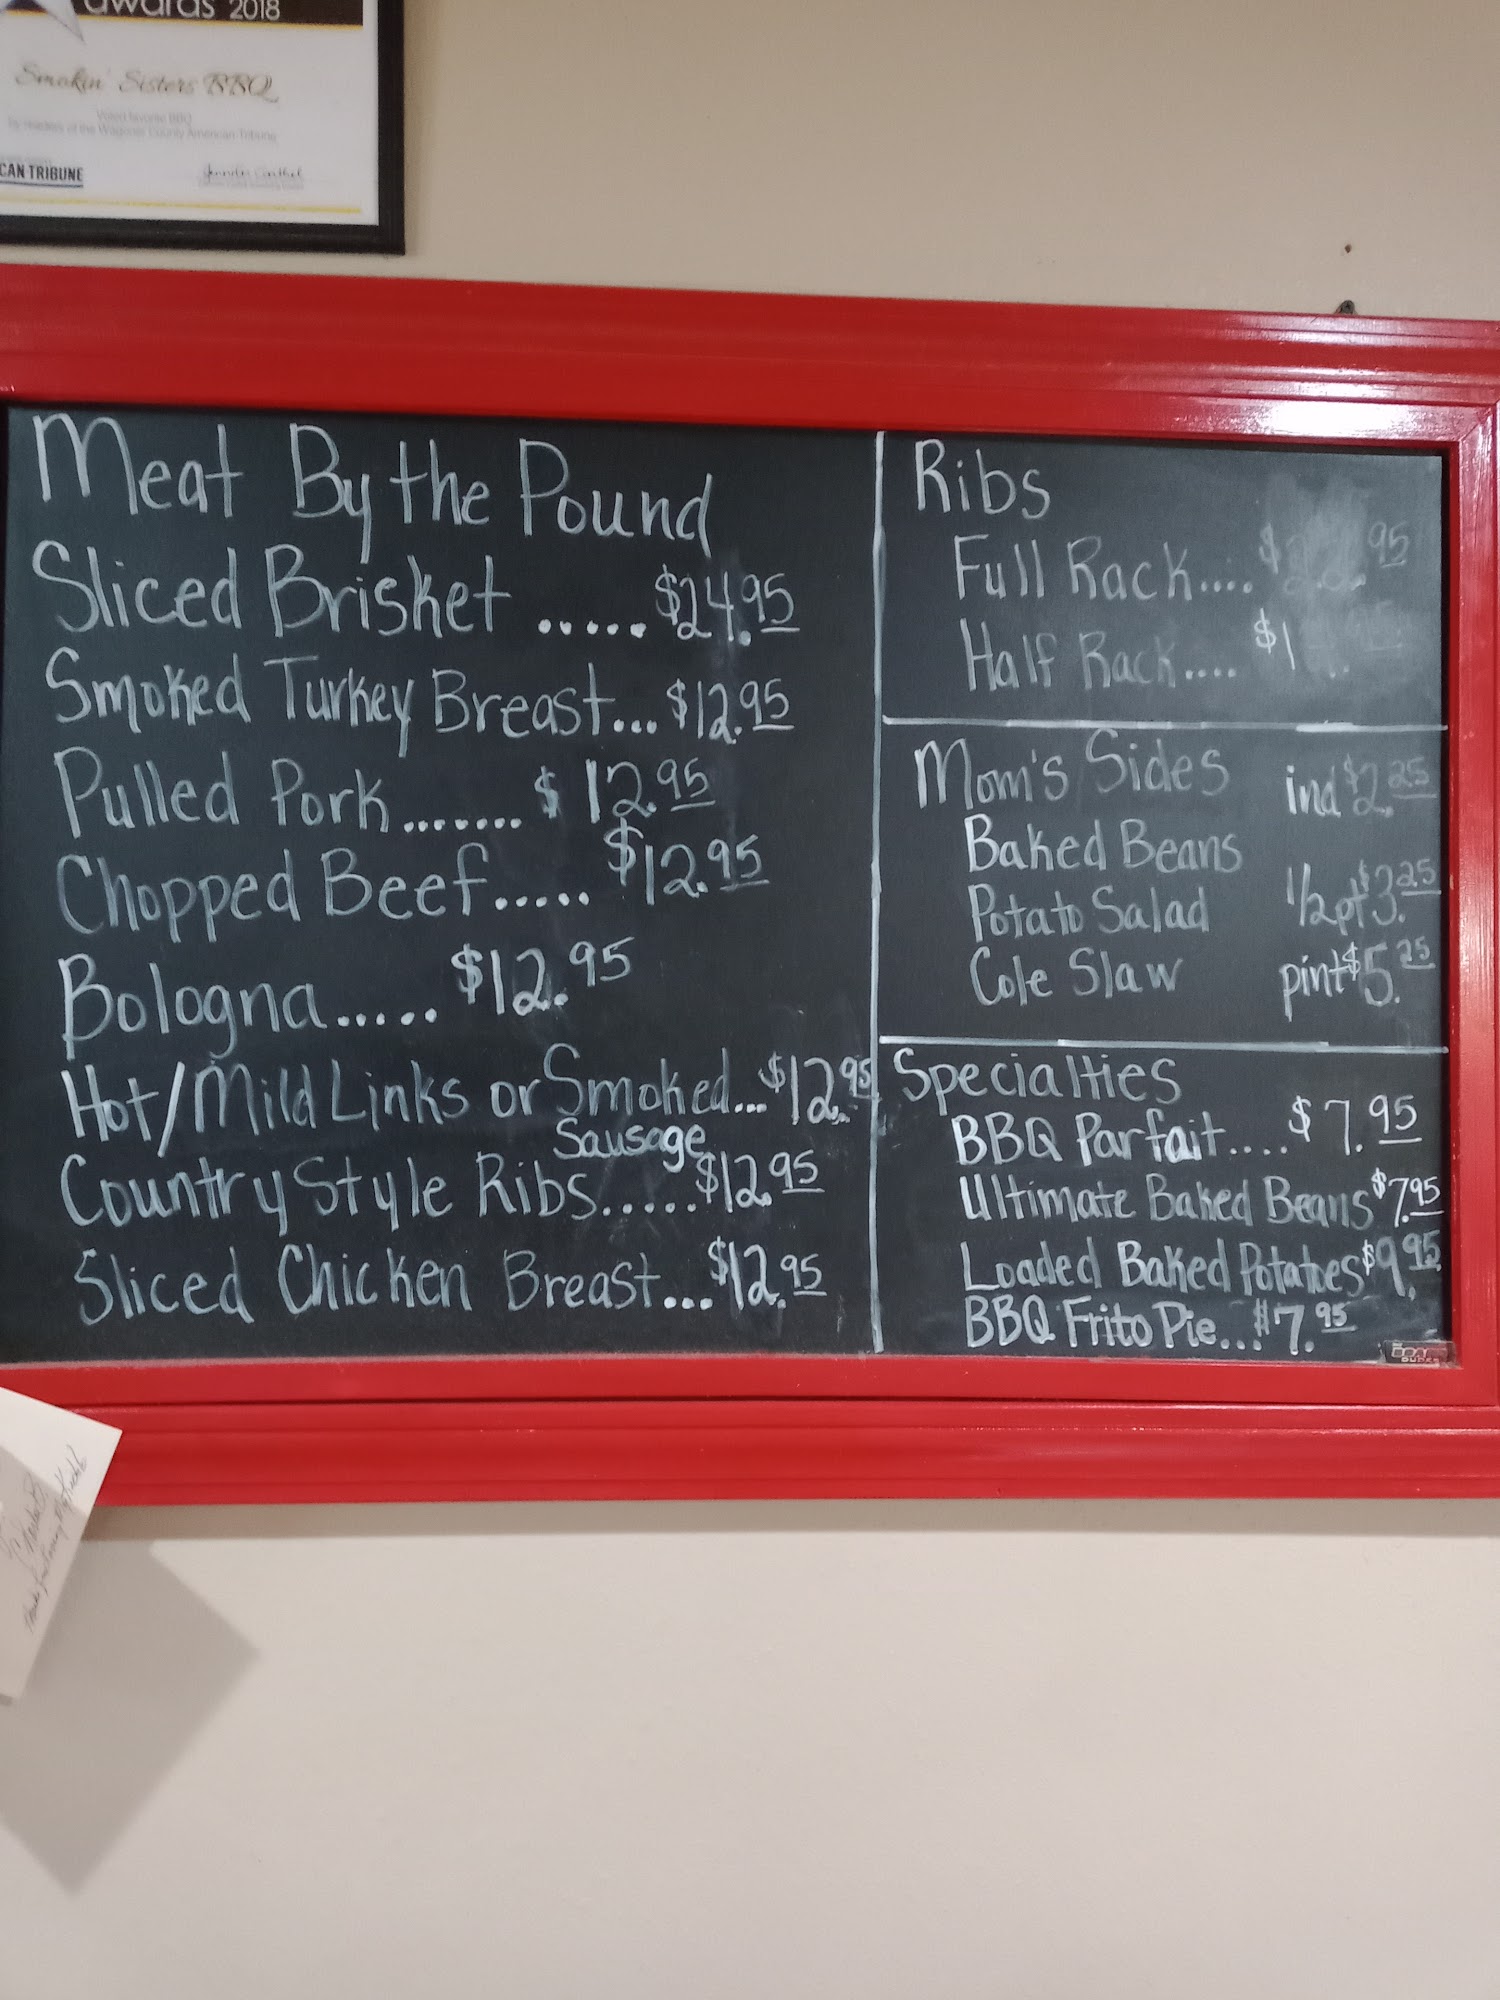 awards 2018
Smokin' Sisters BBQ
Voted favorite BBQ
by readers of the Wagoner County American-Tribune
CAN TRIBUNE
Meat By the Pound
Sliced Brisket ..... $24.95
Smoked Turkey Breast... $12.95
Pulled Pork ....... $12.95
Chopped Beef..... $12.95
Bologna..... $12.95
Hot/Mild Links or Smoked... $12.95
Sausage
Country Style Ribs..... $12.95
Sliced Chicken Breast... $12.95
Ribs
Full Rack....
Half Rack....
Mom's Sides ind $2.25
Baked Beans
Potato Salad 1/2pt $3.25
Cole Slaw pint $5.25
Specialties
BBQ Parfait.... $7.95
Ultimate Baked Beans $7.95
Loaded Baked Potatoes $9.95
BBQ Frito Pie... $7.95